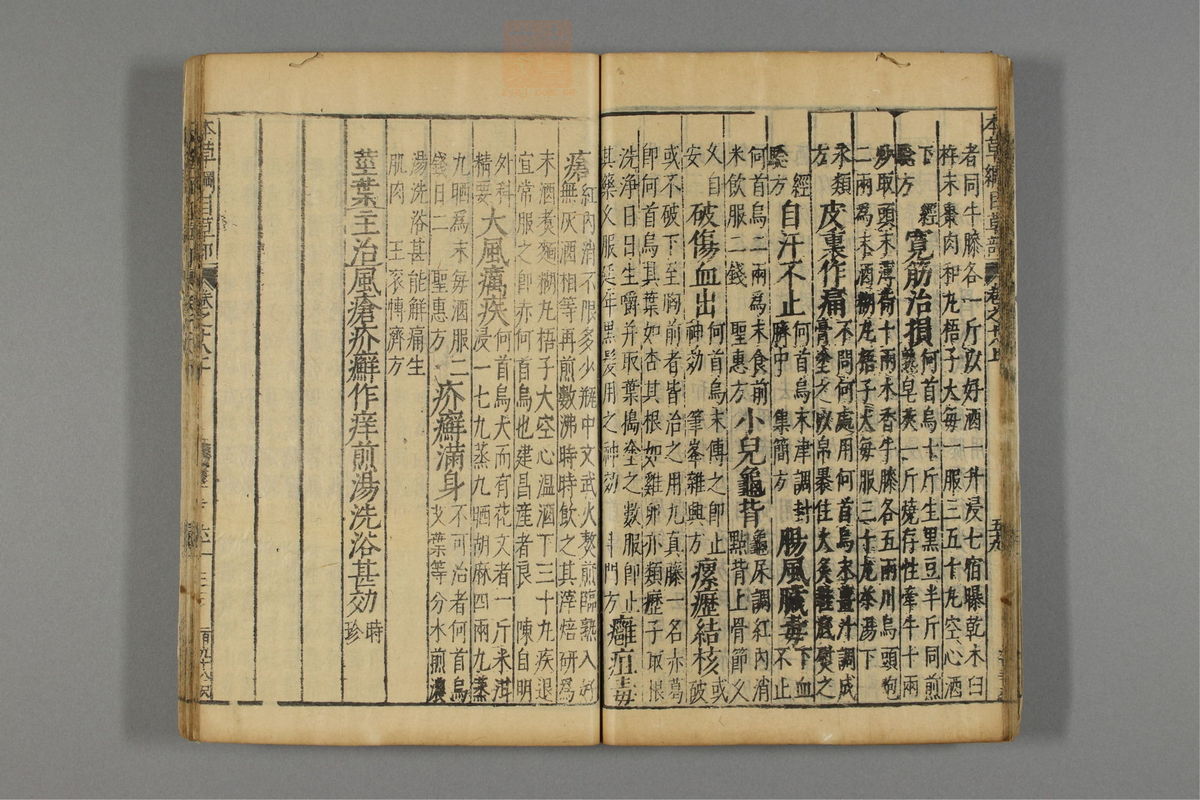 者同牛膝各一斤以好酒一升浸七宿曝乾木臼
杵末棗肉和丸梧子大每一服三五十丸空心酒
下 經驗方 寬筋治損 何首烏十斤生黑豆半斤同煎
熟皂莢一斤燒存性牽牛十兩
炒取頭末薄荷十兩木香牛膝各五兩川烏頭炮
二兩為末酒糊丸梧子大每服三十丸茶湯下
永類方 皮裏作痛 不問何處用何首烏末薑汁調成
膏塗之以帛裹住火炙鞋底熨之
經驗方 自汗不止 何首烏末津調封
臍中 集簡方 腸風臟毒 下血
不止
何首烏二兩為末食前
米飲服二錢 聖惠方 小兒龜背 龜尿調紅內消
點背上骨節久
久自安 破傷血出 何首烏末傅之即止
神効 筆峯雜興方 瘰癧結核 或
破
或不破下至胸前者皆治之用九真藤一名赤葛
即何首烏其葉如杏其根如雞卵亦類癧子取根
洗淨日日生嚼并取葉搗塗之數服即止
其藥久服延年黑髮用之神効 斗門方 癰疽毒
瘡 紅內消不限多少瓶中文武火熬煎臨熟入好
無灰酒相等再煎數沸時時飲之其滓焙研為
末酒煮麵糊丸梧子大空心溫酒下三十丸疾退
宜常服之即赤何首烏也建昌產者良 陳自明
外科精要 大風癘疾 何首烏大而有花文者一斤米泔
浸一七九蒸九晒胡麻四兩九蒸
九晒為末每酒服二
錢日二 聖惠方 疥癬滿身 不可治者何首烏
艾葉等分水煎濃
湯洗浴甚能解痛生
肌肉 王袞博濟方
莖葉主治風瘡疥癬作痒煎湯洗浴甚効 時
珍